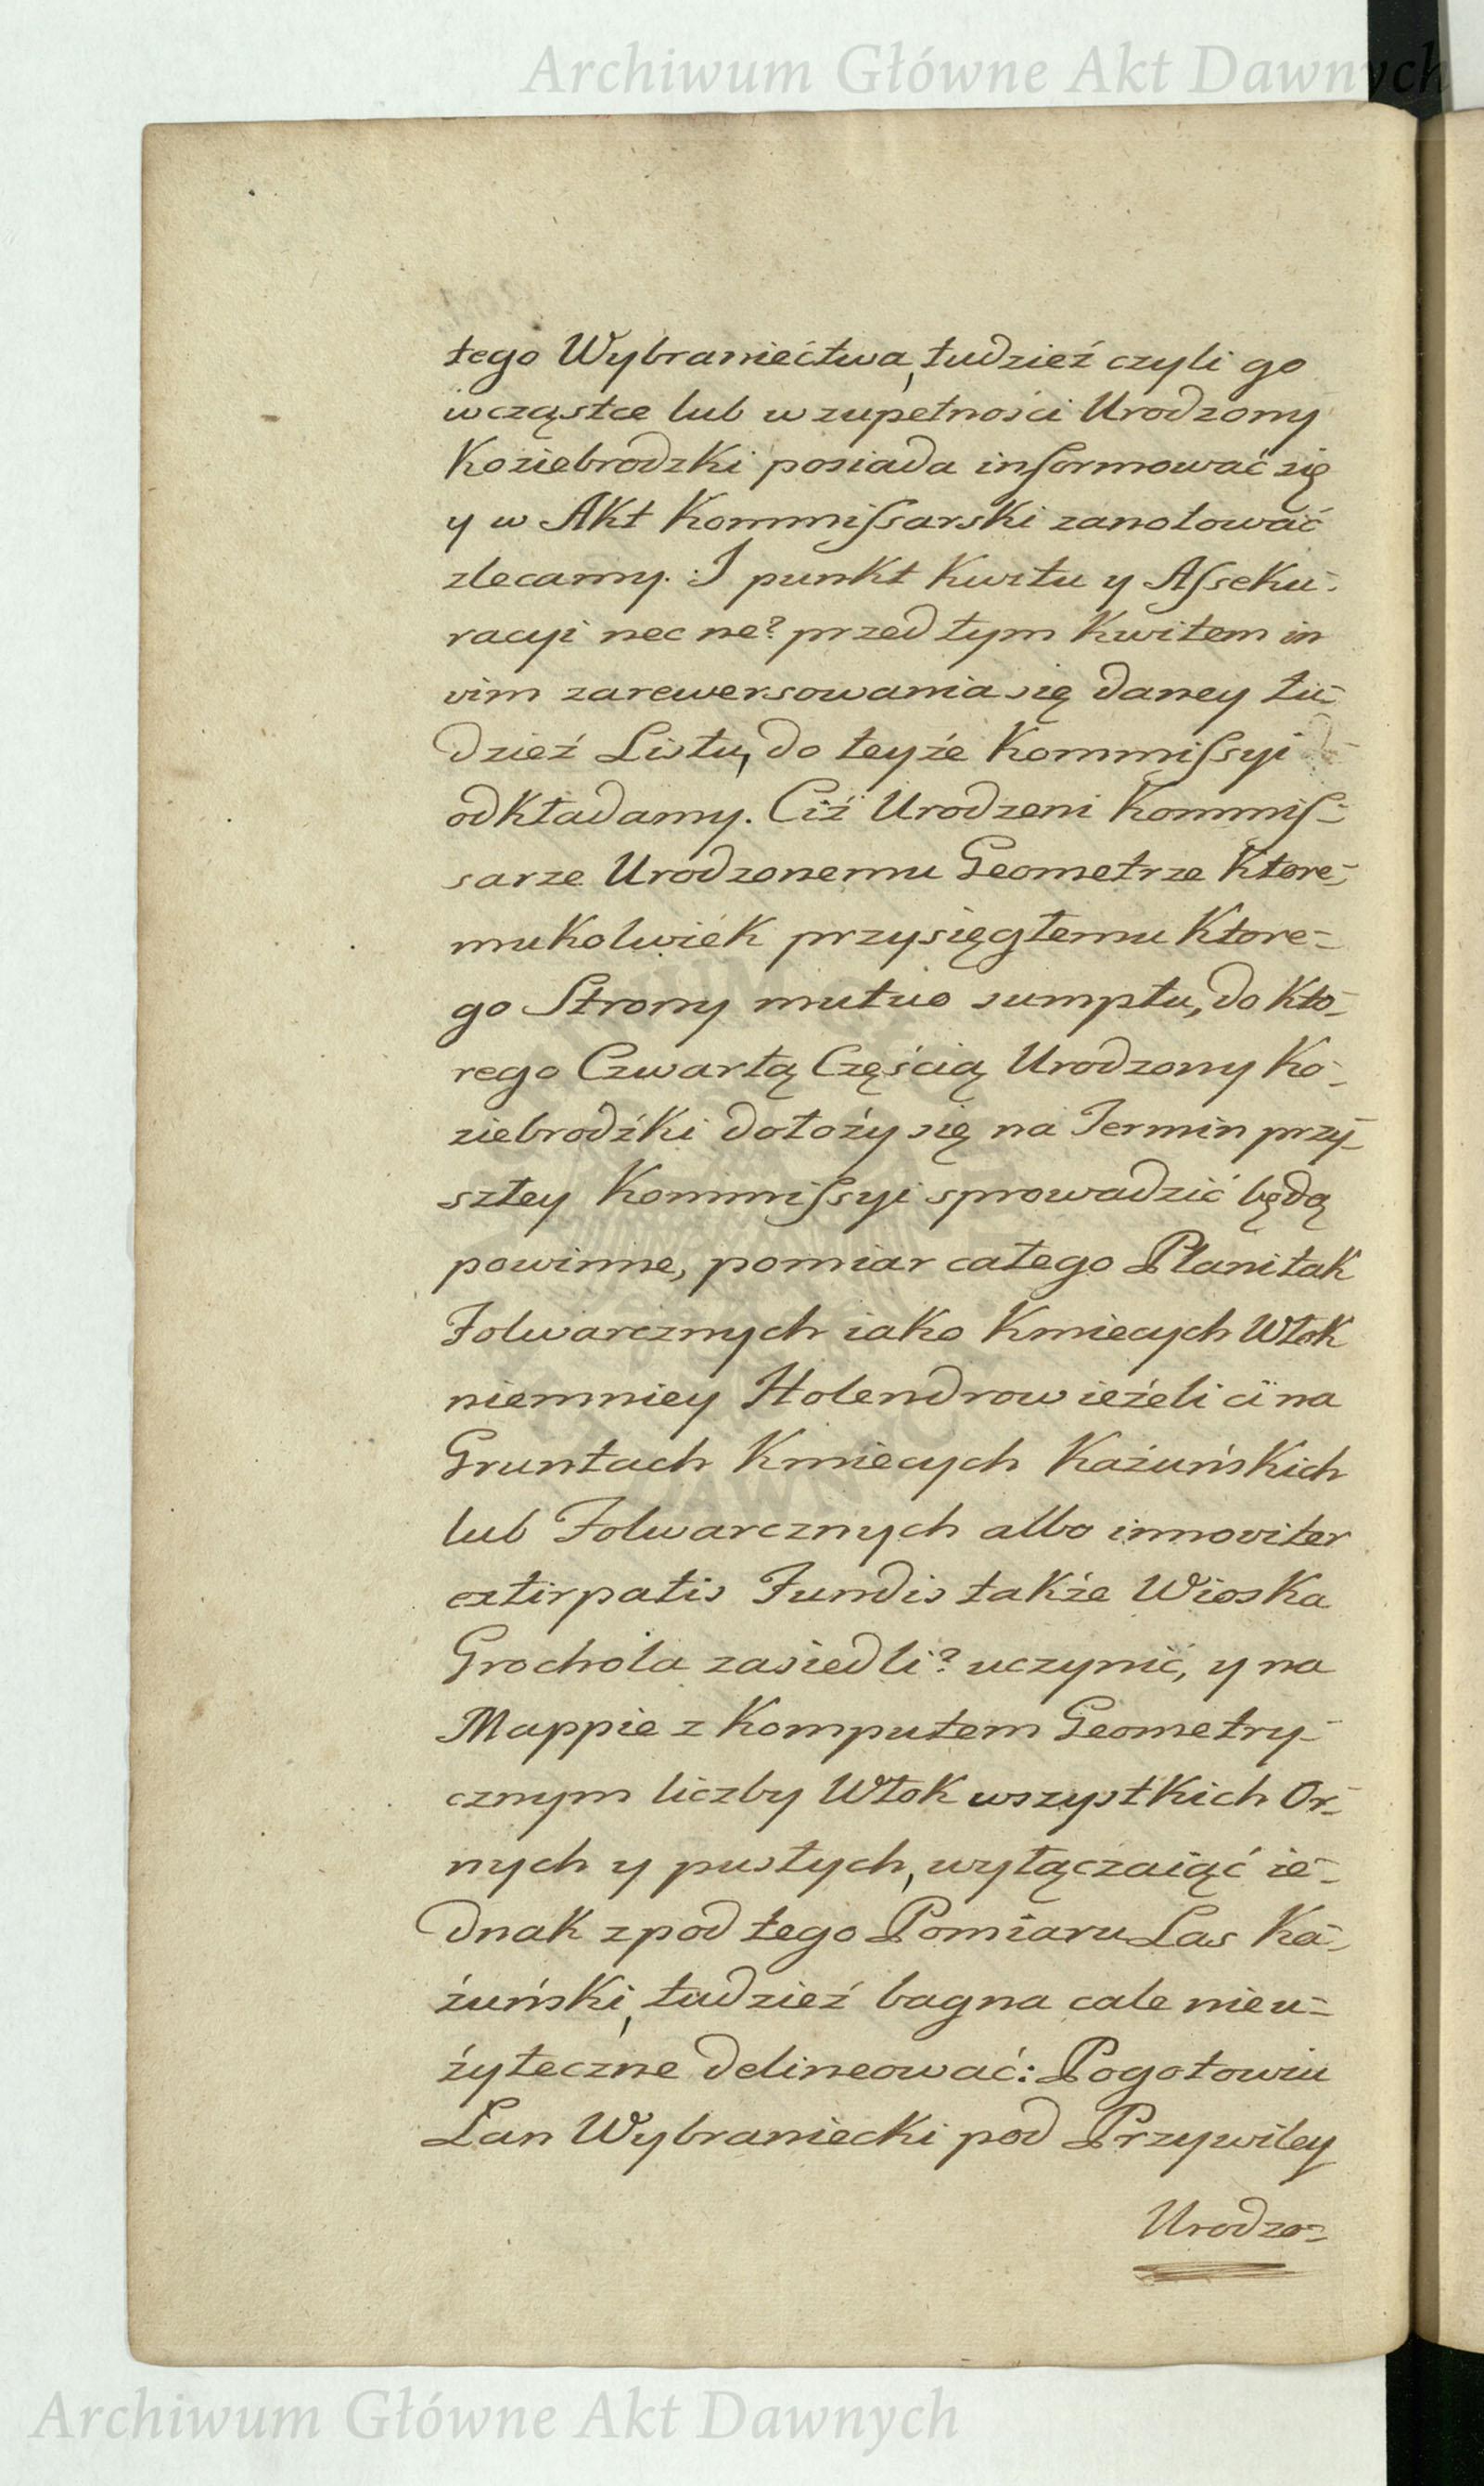 Archiwum Główne Akt Dawnych
tego Wybraniectwa, tudzież czyli go
w cząstce lub w zupełności Urodzony
Koziebrodzki posiada informować się
y w Akt Kommissarski zanotować
zlecamy. I punkt Kwitu y Asseku-
racyi nec ne? przed tym Kwitem in
vim zarewersowania się daney tu-
dzież Listu, do teyże Kommissyi
odkładamy. Ciż Urodzeni Kommis-
sarze Urodzonemu Geometrze Ktore-
mukolwiek przysięgłemu Ktore-
go Strony mutuo sumptu, do Kto-
rego Czwartą Częścią Urodzony Ko-
ziebrodźki dołoży się na Termin przy-
szłey Kommissyi sprowadzić będą
powinne, pomiar całego Plani tak
Folwarcznych iako Kmiecych Włok
niemniey Holendrow ieżeli ci na
Gruntach Kmiecych Każuńskich
lub Folwarcznych albo innoviter
extirpatis Fundis także Wioska
Grochola zasiedli? uczynić, y na
Mappie z Komputem Geometry-
cznym liczby Włok wszystkich Or-
nych y pustych, wyłączaiąć ie-
dnak z pod tego Pomiaru Las Ka-
żuński, tudzież bagna cale nieu-
żyteczne delineować: Pogotowiu
Łan Wybraniecki pod Przywiley
Urodzo-
Archiwum Główne Akt Dawnych